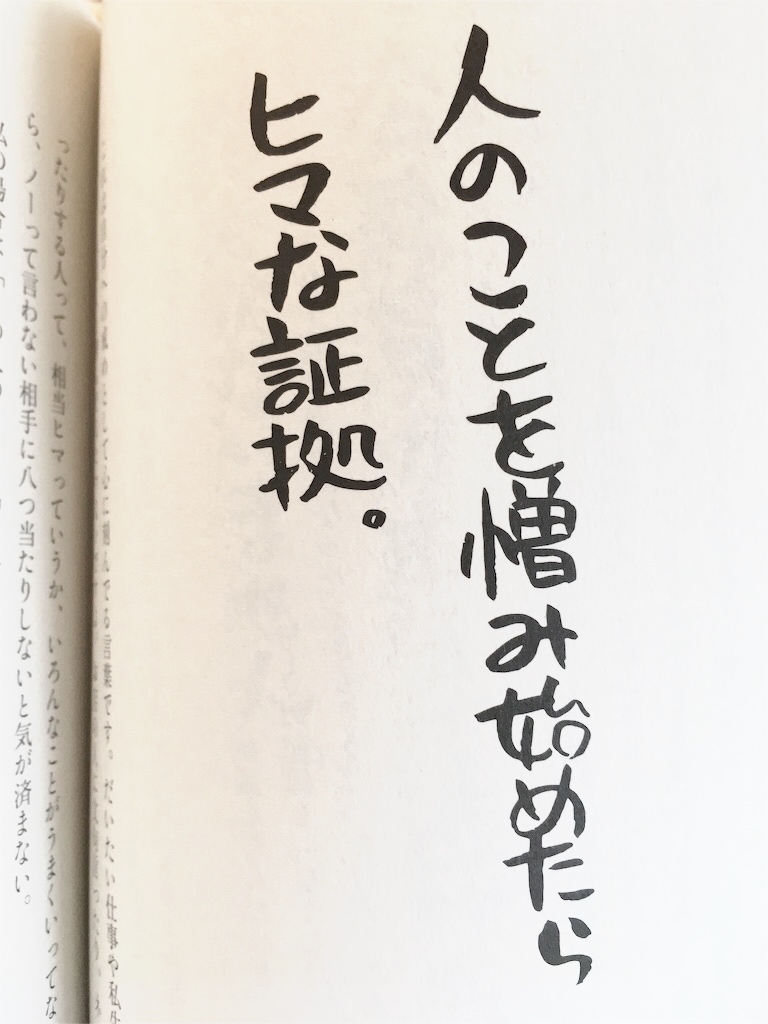 人のことを憎み始めたら
ヒマな証拠。
として心に刻んでる言葉です。だいたい仕事や私生
ったりする人って、相当ヒマっていうか、いろんなことがうまくいってな
ら、ノーって言わない相手に八つ当たりしないと気が済まない。